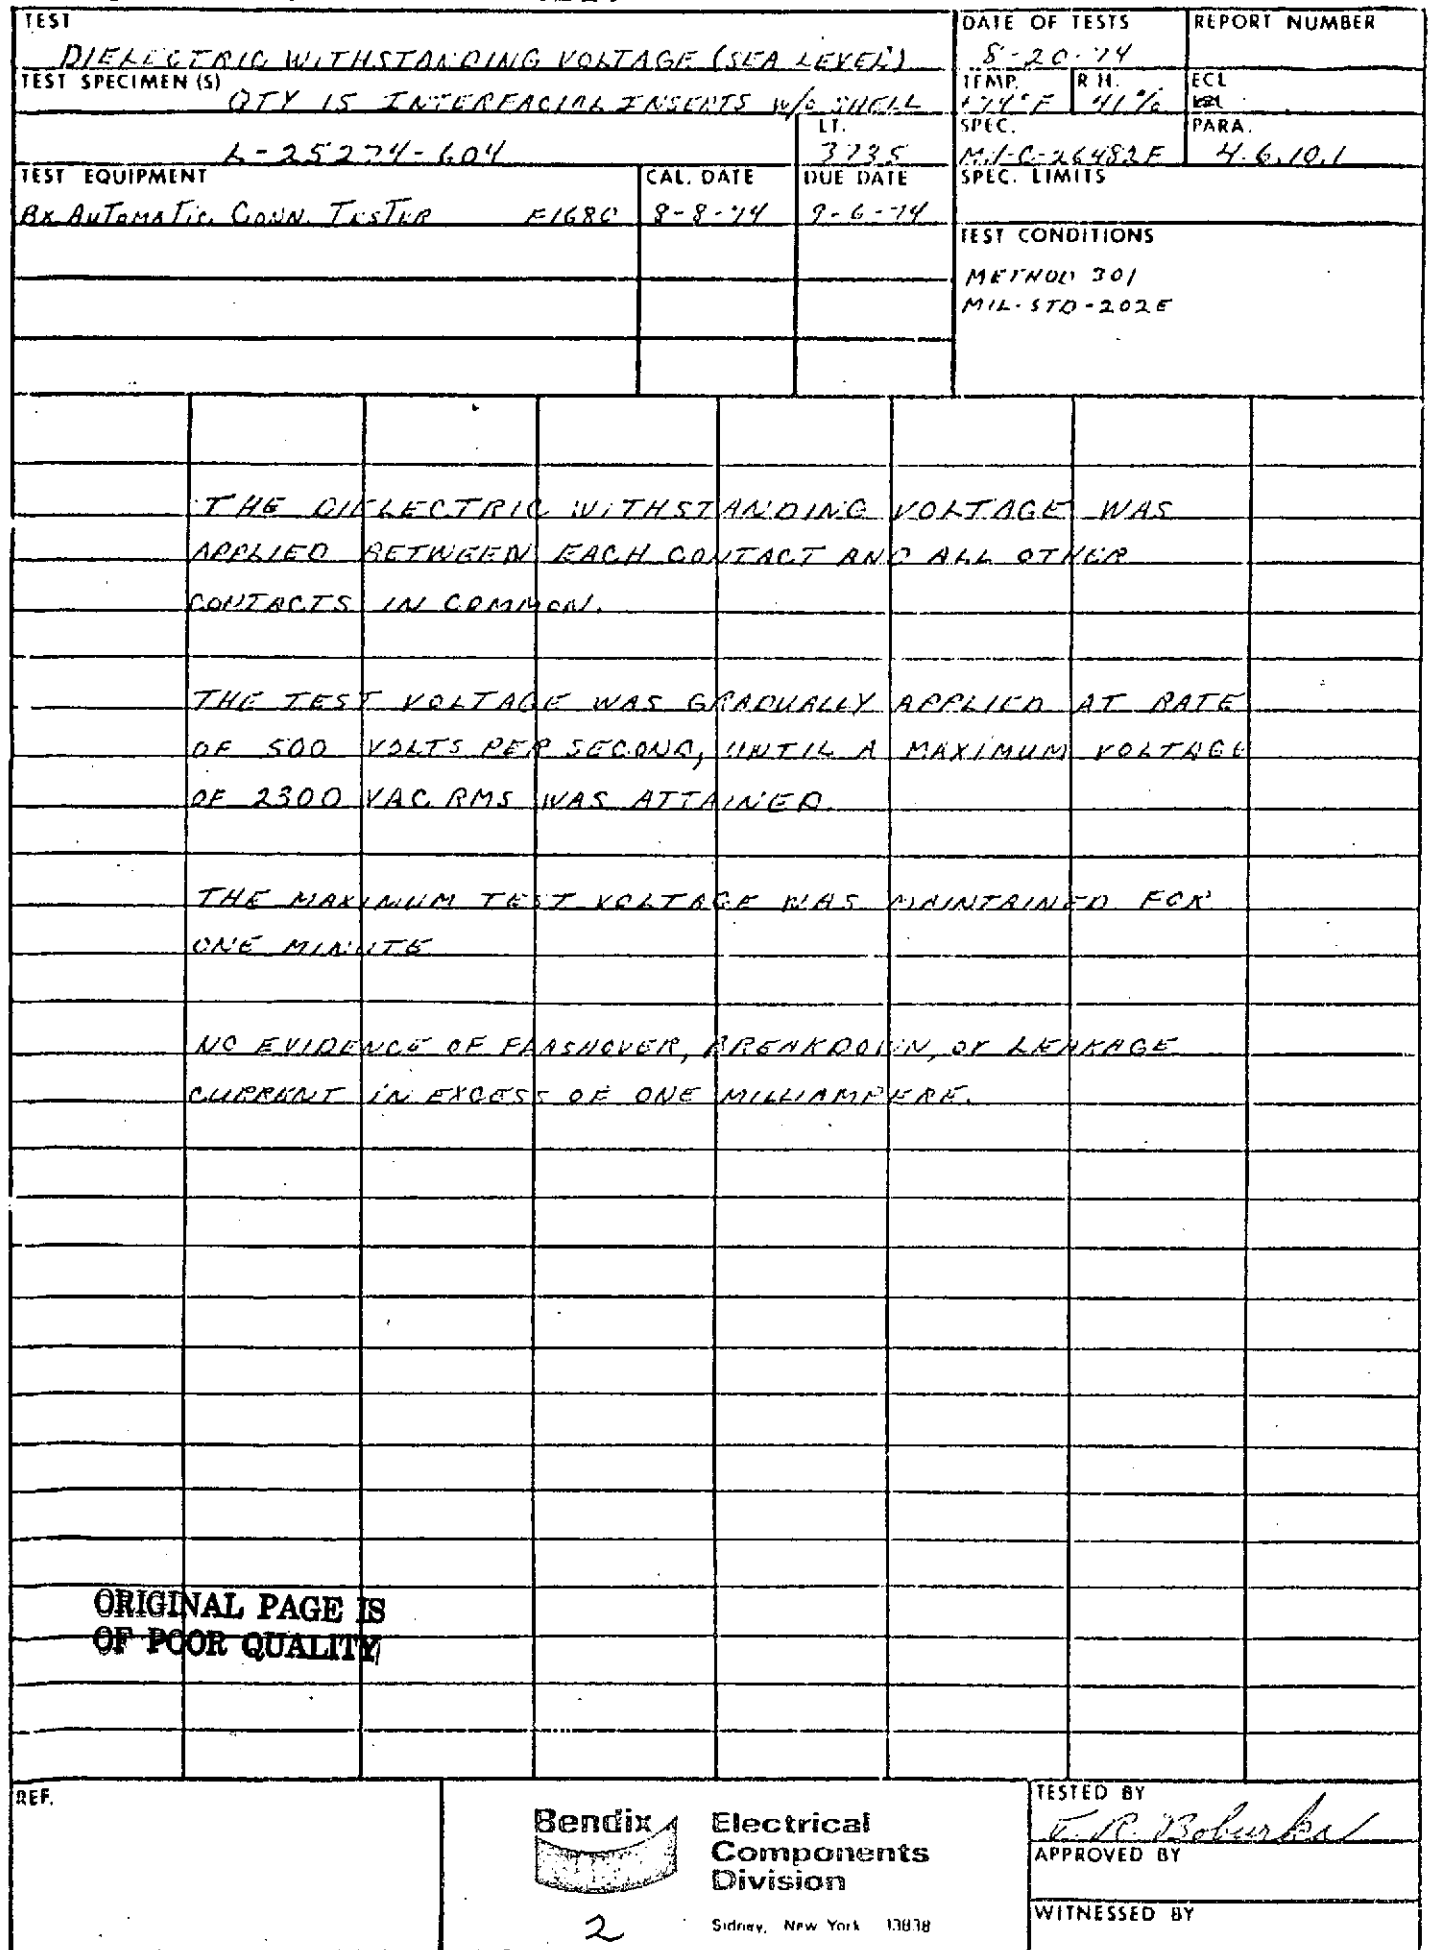 TEST
DIELECTRIC WITHSTANDING VOLTAGE (SEA LEVEL)
DATE OF TESTS
8-20-74
REPORT NUMBER
TEST SPECIMEN (S)
QTY 15 INTERFACIAL INSERTS W/O SHELL
TEMP.
+74°F
R H.
41%
ECL
L-25274-604
LT.
3735
SPEC.
MIL-C-26482E
PARA.
4.6.10.1
TEST EQUIPMENT
CAL. DATE
DUE DATE
SPEC. LIMITS
BX AUTOMATIC CONN. TESTER E1680
8-8-74
9-6-74
TEST CONDITIONS
METHOD 301
MIL-STD-202E
THE DIELECTRIC WITHSTANDING VOLTAGE WAS
APPLIED BETWEEN EACH CONTACT AND ALL OTHER
CONTACTS IN COMMON.
THE TEST VOLTAGE WAS GRADUALLY APPLIED AT RATE
OF 500 VOLTS PER SECOND, UNTIL A MAXIMUM VOLTAGE
OF 2300 VAC RMS WAS ATTAINED.
THE MAXIMUM TEST VOLTAGE WAS MAINTAINED FOR
ONE MINUTE
NO EVIDENCE OF FLASHOVER, BREAKDOWN, OR LEAKAGE
CURRENT IN EXCESS OF ONE MILLIAMPERE.
ORIGINAL PAGE IS
OF POOR QUALITY
REF.
Bendix
Electrical
Components
Division
Sidney, New York 13838
2
TESTED BY
APPROVED BY
WITNESSED BY